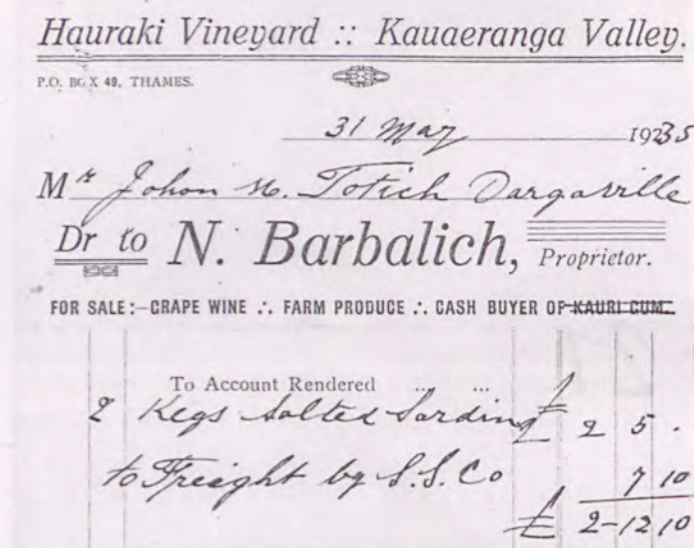 Hauraki Vineyard :: Kauaeranga Valley.
P.O. BOX 49, THAMES.
31 May 1935
Mr Johon M. Totich Dargaville
Dr to N. Barbalich, Proprietor.
FOR SALE:—GRAPE WINE ∴ FARM PRODUCE ∴ CASH BUYER OF KAURI GUM.
To Account Rendered ... ...
2 Kegs Salted Sardins £ 2 5 .
to Freight by S.S. Co 7 10
£ 2-12 10